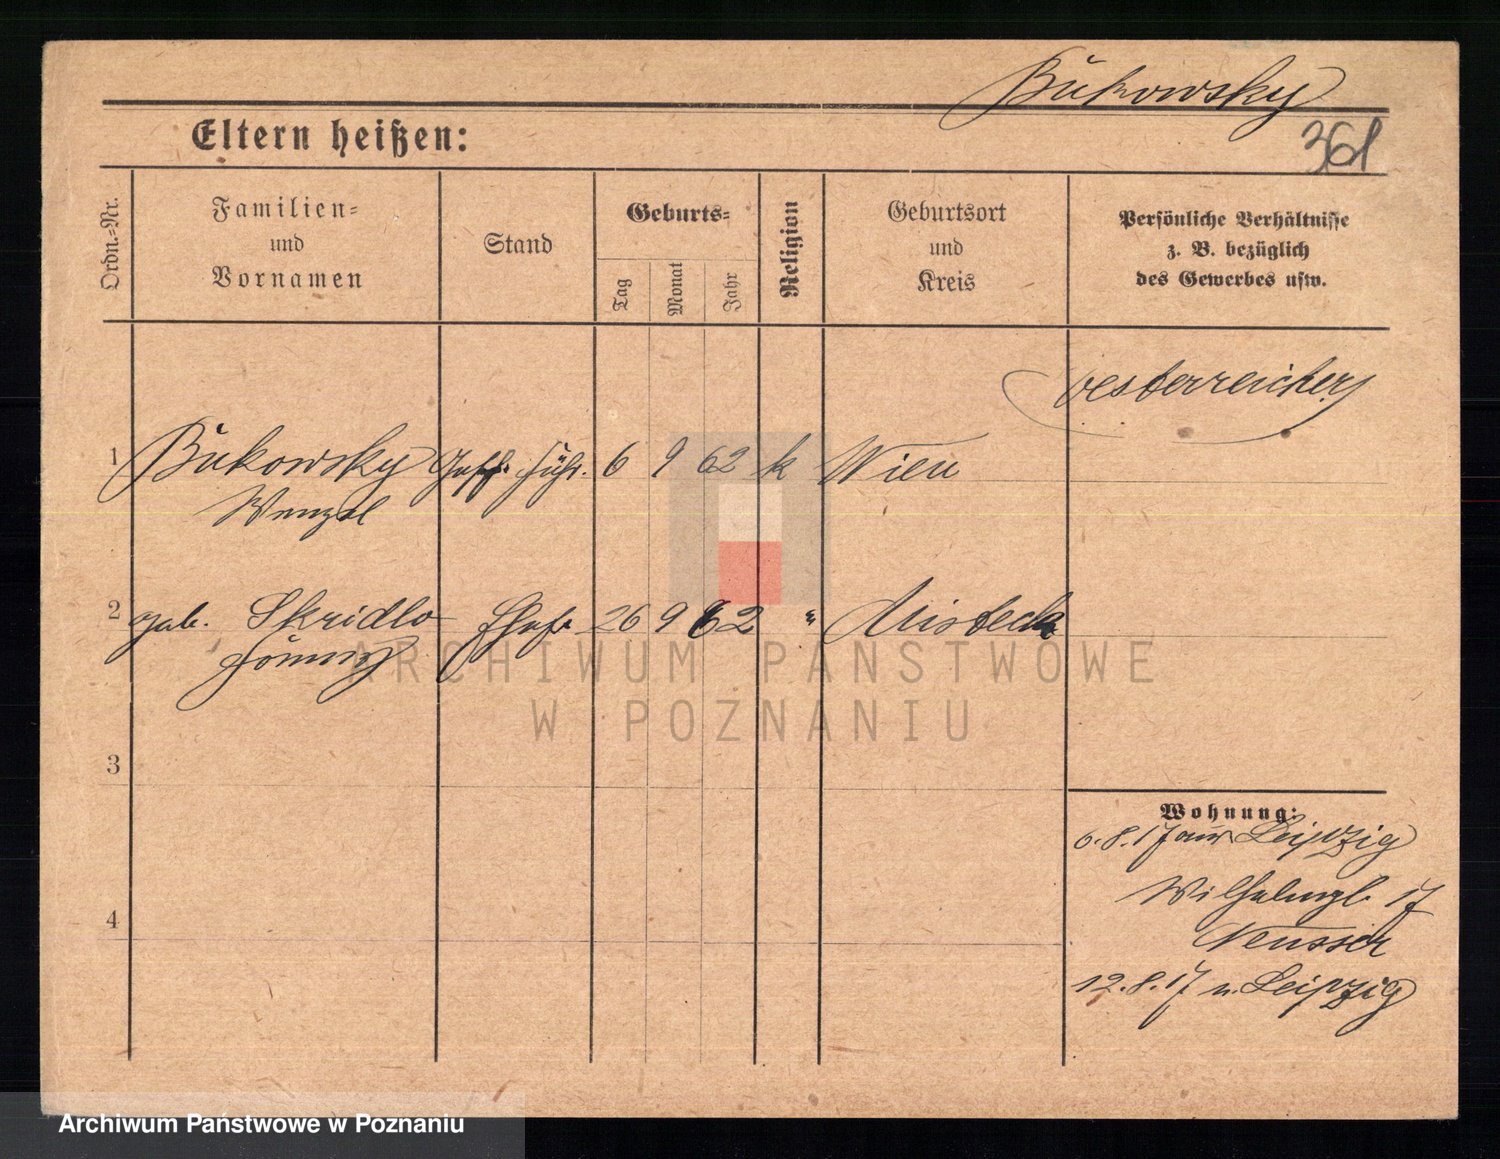 Bukowsky
361
Eltern heißen:
Ordn.=Nr.
Familien=
und
Vornamen
Stand
Geburts=
Tag
Monat
Jahr
Religion
Geburtsort
und
Kreis
Persönliche Verhältnisse
z. B. bezüglich
des Gewerbes usw.
oesterreicher
1 Bukowsky 6 9 62 k Wien
Wenzel
2 geb. Skridlo Ehefr. 26 9 62 " Misteck
3
4
Wohnung:
6.8.17 aus Leipzig
17
Neusser
12.8.17 n. Leipzig
ARCHIWUM PAŃSTWOWE
W POZNANIU
Archiwum Państwowe w Poznaniu